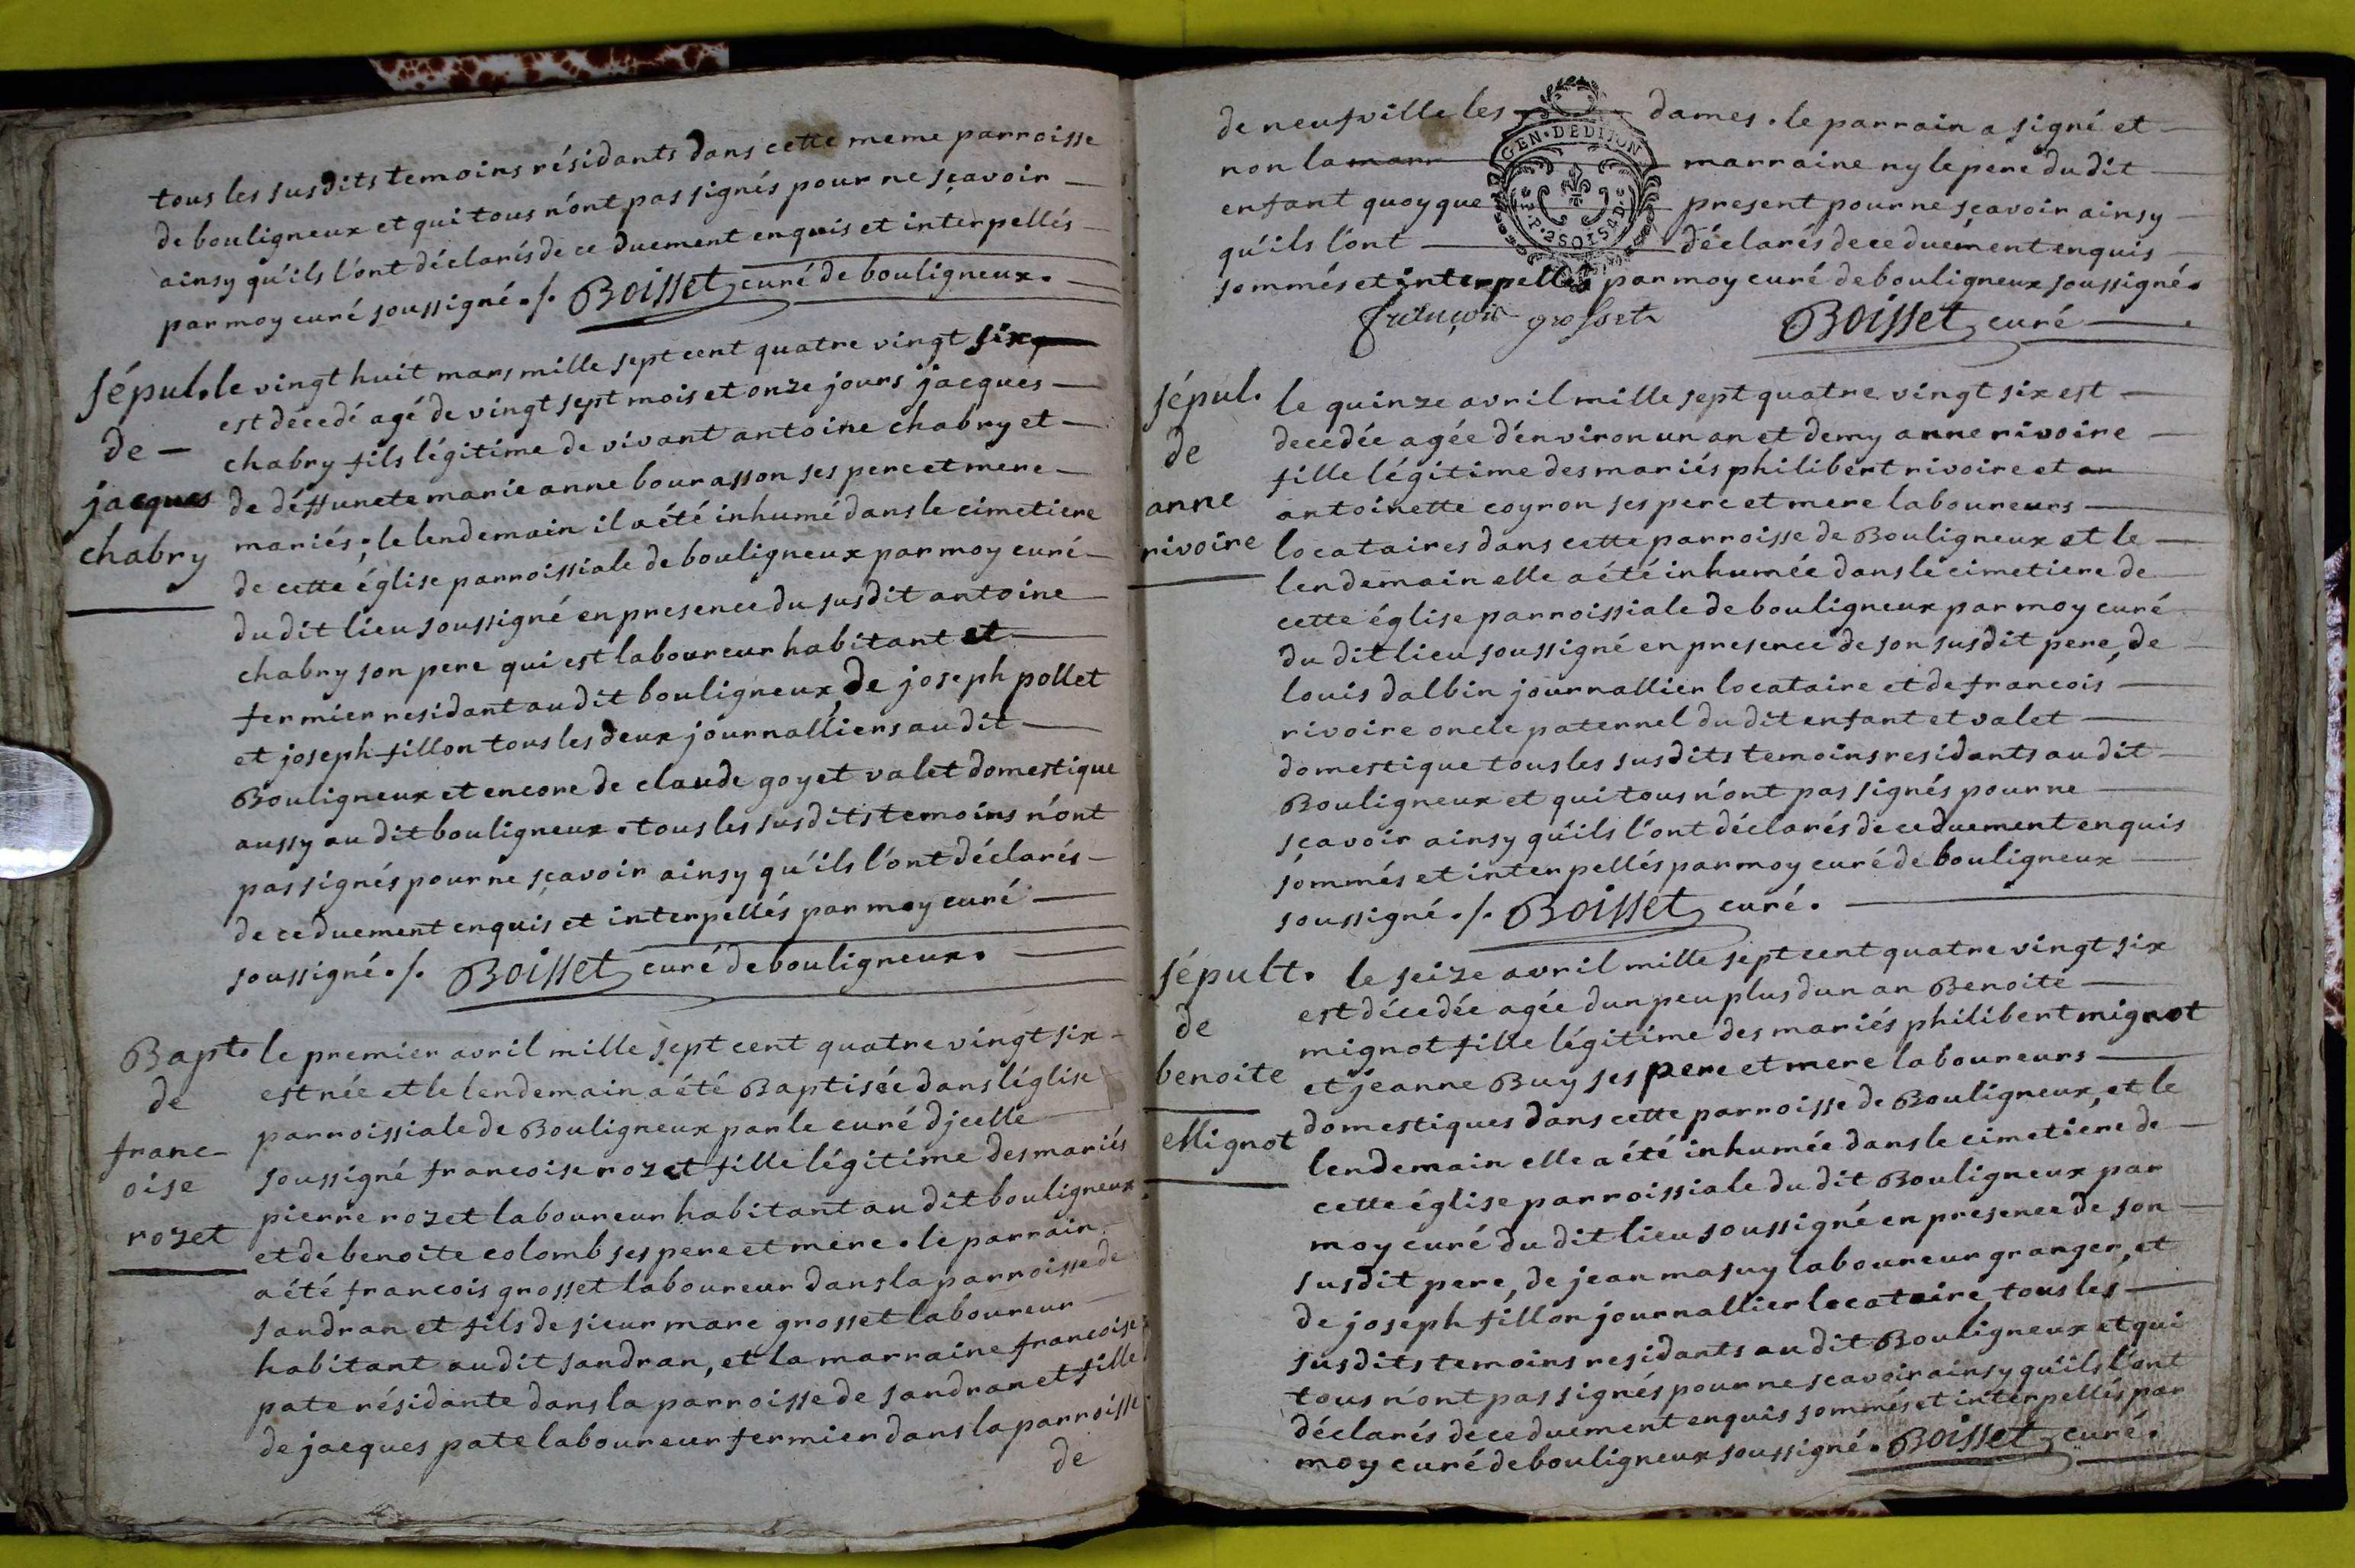 tous les susdits temoins résidants dans cette meme parroisse
de bouligneux et qui tous n'ont pas signés pour ne sçavoir
ainsy qu'ils l'ont déclarés de ce duement enquis et interpellés
par moy curé soussigné ./. Boisset curé de bouligneux.
sépul.
de
jacques
chabry
le vingt huit mars mille sept cent quatre vingt six
est décedé agé de vingt sept mois et onze jours jacques
chabry fils légitime de vivant antoine chabry et
de déffuncte marie anne bourasson ses pere et mere
mariés; le lendemain il a été inhumé dans le cimetiere
de cette église parroissiale de bouligneux par moy curé
du dit lieu soussigné en presence du susdit antoine
chabry son pere qui est laboureur habitant et
fermier residant au dit bouligneux, de joseph pollet
et joseph fillon tous les deux journalliers au dit
Bouligneux et encore de claude goyet valet domestique
aussy au dit bouligneux. tous les susdits temoins n'ont
pas signés pour ne sçavoir ainsy qu'ils l'ont déclarés
de ce duement enquis et interpellés par moy curé
soussigné ./. Boisset curé de bouligneux.
Bapt.
de
franc-
oise
rozet
le premier avril mille sept cent quatre vingt six
est née et le lendemain a été Baptisée dans l'église
parroissiale de Bouligneux par le curé d'jcelle
soussigné francoise rozet fille légitime des mariés
pierre rozet laboureur habitant au dit bouligneux
et de benoite colomb ses pere et mere. le parrain
a été francois grosset laboureur dans la parroisse de
sandran et fils de sieur marc grosset laboureur
habitant au dit sandran, et la marraine francoise
pate résidante dans la parroisse de sandran et fille
de jacques pate laboureur fermier dans la parroisse
de
de neufville les dames. le parrain a signé et
non la marr marraine ny le pere du dit
enfant quoyque present pour ne sçavoir ainsy
qu'ils l'ont déclarés de ce duement enquis
sommés et interpellés par moy curé de bouligneux soussigné.
GEN. DE DIJON
françois grosset Boisset curé
sépul.
de
anne
rivoire
le quinze avril mille sept quatre vingt six est
decedée agée d'environ un an et demy anne rivoire
fille légitime des mariés philibert rivoire et an
antoinette coyron ses pere et mere laboureurs
locataires dans cette parroisse de Bouligneux et le
lendemain elle a été inhumée dans le cimetiere de
cette église parroissiale de bouligneux par moy curé
du dit lieu soussigné en presence de son susdit pere, de
louis dalbin journallier locataire et de francois
rivoire oncle paternel du dit enfant et valet
domestique tous les susdits temoins residants au dit
Bouligneux et qui tous n'ont pas signés pour ne
sçavoir ainsy qu'ils l'ont déclarés de ce duement enquis
sommés et interpellés par moy curé de bouligneux
soussigné ./. Boisset curé.
sépult.
de
benoite
Mignot
le seize avril mille sept cent quatre vingt six
est décedée agée d'un peu plus d'un an Benoite
mignot fille légitime des mariés philibert mignot
et jeanne Buy ses pere et mere laboureurs
domestiques dans cette parroisse de Bouligneux, et le
lendemain elle a été inhumée dans le cimetiere de
cette église parroissiale du dit Bouligneux par
moy curé du dit lieu soussigné en presence de son
susdit pere, de jean masuy laboureur granger, et
de joseph fillon journallier locataire, tous les
susdits temoins residants au dit Bouligneux et qui
tous n'ont pas signés pour ne scavoir ainsy qu'ils l'ont
déclarés de ce duement enquis sommés et interpellés par
moy curé de bouligneux soussigné. Boisset curé.